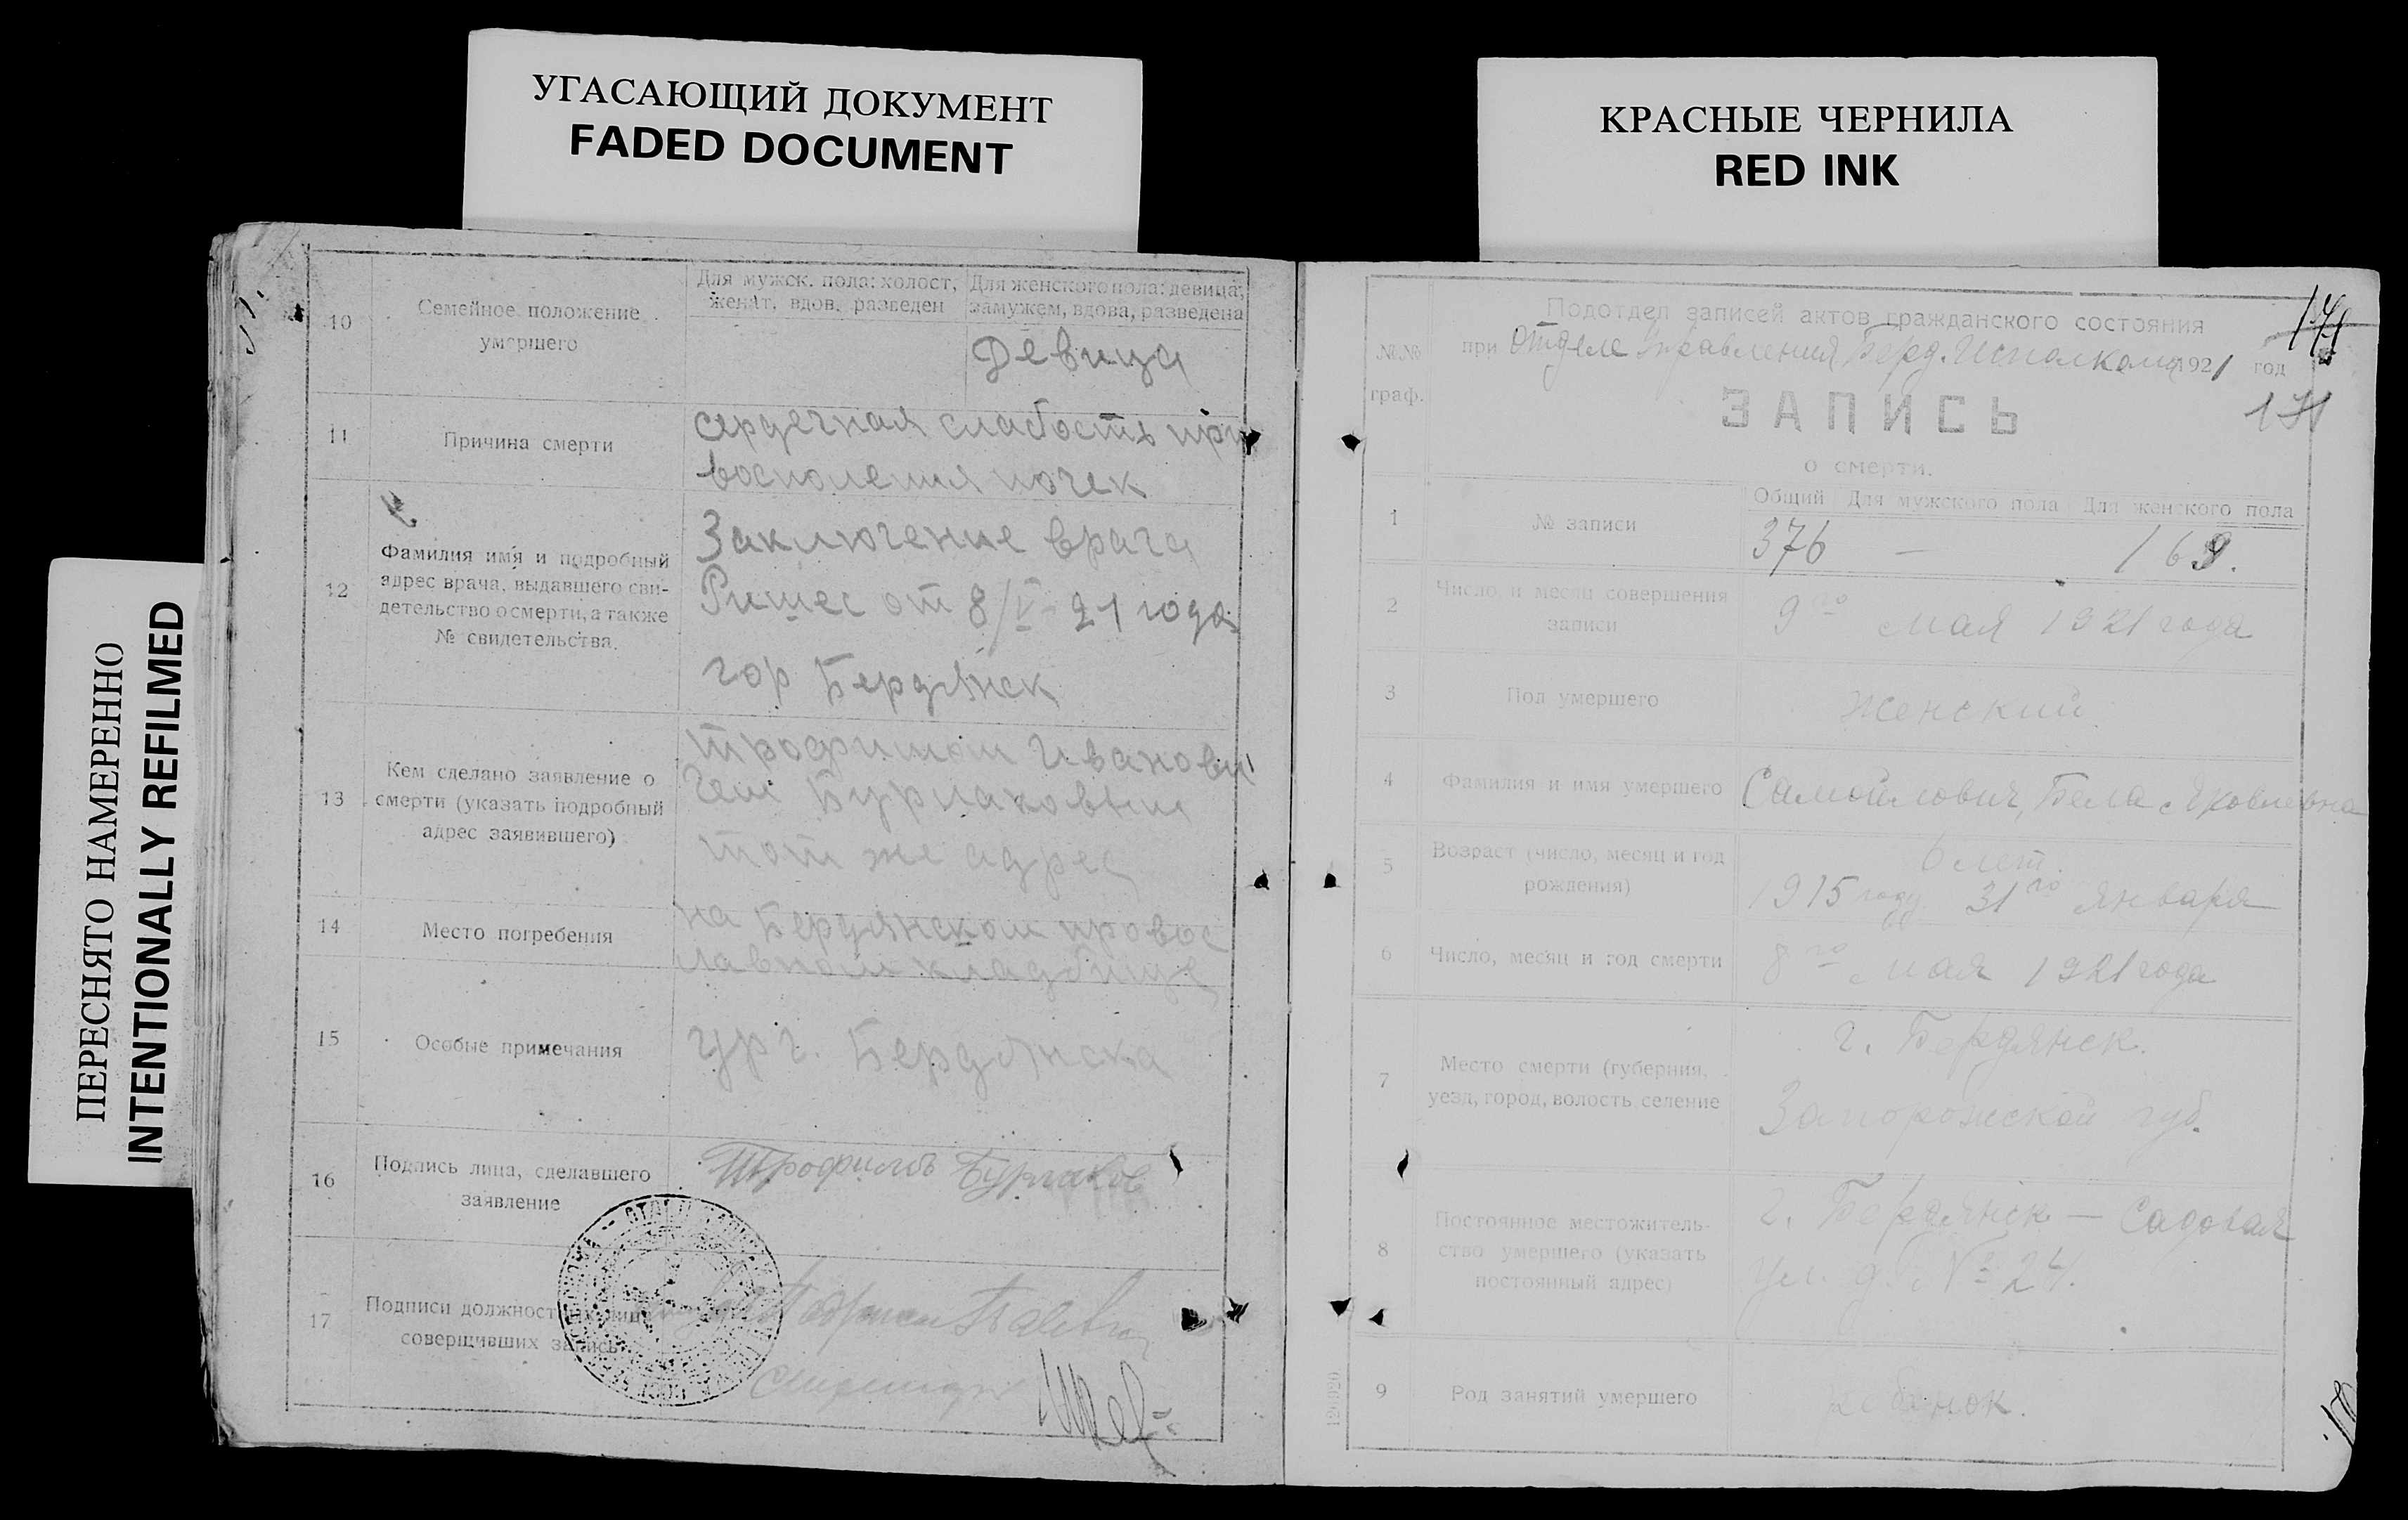 УГАСАЮЩИЙ ДОКУМЕНТ
FADED DOCUMENT
КРАСНЫЕ ЧЕРНИЛА
RED INK
ПЕРЕСНЯТО НАМЕРЕННО
INTENTIONALLY REFILMED
10
Семейное положение
умершего
Для мужск. пола: холост,
женат, вдов, разведен
Для женского пола: девица,
замужем, вдова, разведена
Девица
11
Причина смерти
сердечная слабость при
восполения почек
12
Фамилия имя и подробный
адрес врача, выдавшего сви-
детельство о смерти, а также
№ свидетельства.
Заключение врача
от 8/V-21 года
гор Бердянск
13
Кем сделано заявление о
смерти (указать подробный
адрес заявившего)
трофимом Иванови
чем Бурлаковым
тот же адрес
14
Место погребения
на Бердянском провос
лавном кладбище
15
Особые примечания
гр г. Бердянска
16
Подпись лица, сделавшего
заявление
Трофимъ Бурлаков
17
Подписи должностных лиц
совершивших запись
№№
граф.
Подотдел записей актов гражданского состояния
при Отделе Управления Берд. Исполкома 1921 год
171
ЗАПИСЬ
о смерти.
1
№ записи
Общий Для мужского пола Для женского пола
376 — 169.
2
Число, и месяц совершения
записи
9го мая 1921 года
3
Пол умершего
Женский
4
Фамилия и имя умершего
Самойлович, Бела Яковлевна
5
Возраст (число, месяц и год
рождения)
6 лет.
1915 году 31го января
6
Число, месяц и год смерти
8го мая 1921 года
7
Место смерти (губерния,
уезд, город, волость, селение
г. Бердянск.
Запорожской губ.
8
Постоянное местожитель-
ство умершего (указать
постоянный адрес)
г. Бердянск — Садовая
ул. д. № 24.
9
Род занятий умершего
ребенок.